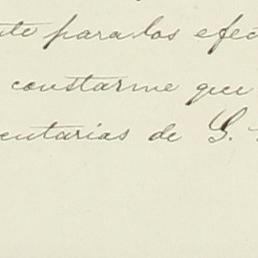 nte para los efec
constarme que
entarias de G.